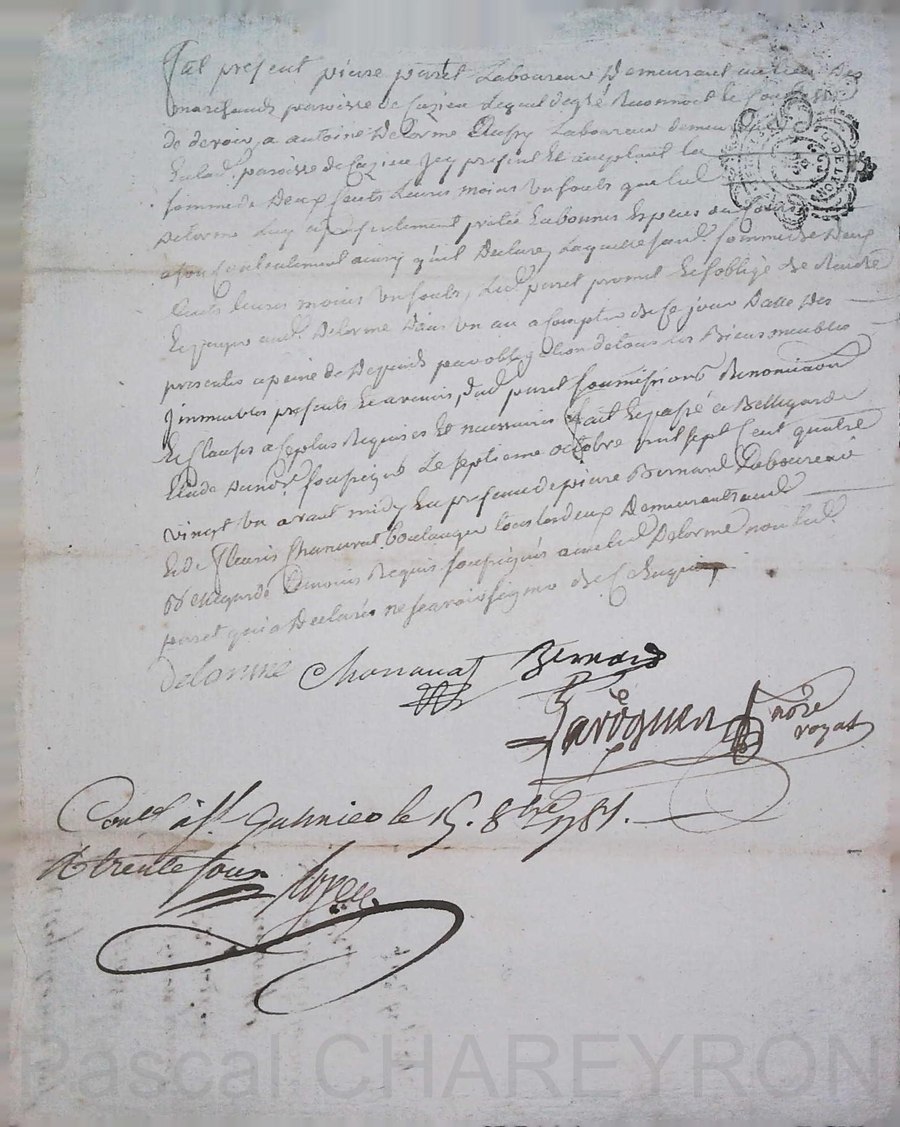 Fut présent pierre paret Laboureur Demeurant au lieu des
marchands paroisse de Cuzieu Lequel degré Reconnoit et Confesse
de devoir a antoine Delorme aussy Laboureur demeurant
paroisse de Cuzieu jcy présent Et acceptant la
somme de Deux Cents Livres moins un souls que led.
Delorme Luy a présentement prêtée En bonnes Espèces du Cours
a son Contentement ainsy qu'il Declare, Laquelle sud. somme de Deux
Cents Livres moins un souls, Led. paret promet Et s'oblige de Rendre
Et payer aud. Delorme Dans un an a Compter de Ce jour Datte des
presentes a peine de Depends par obligation de tous ses Biens meubles
jmmeubles présents Et avenir, dud. paret soumissions Renonciaōn
Et Clauses a Ce plus Requises Et necessaires fait Et passé a Bellegarde
Etude du no.re soussigné Le septieme octobre mil sept Cent quatre
vingt un avant midy En presence de pierre Bernard Laboureur
Et de fleuris Chanavat boulanger tous les deux Demeurants aud.
Bellegarde temoins Requis soussignés avec led. Delorme non led.
paret qui a Declaré ne sçavoir signer de Ce Enquis
delorme Chanavat Bernard
no.re
royal
Con.lé à S.t Galmier le 15. 8bre 1781.
R trente sous
DE LYON
Pascal CHAREYRON